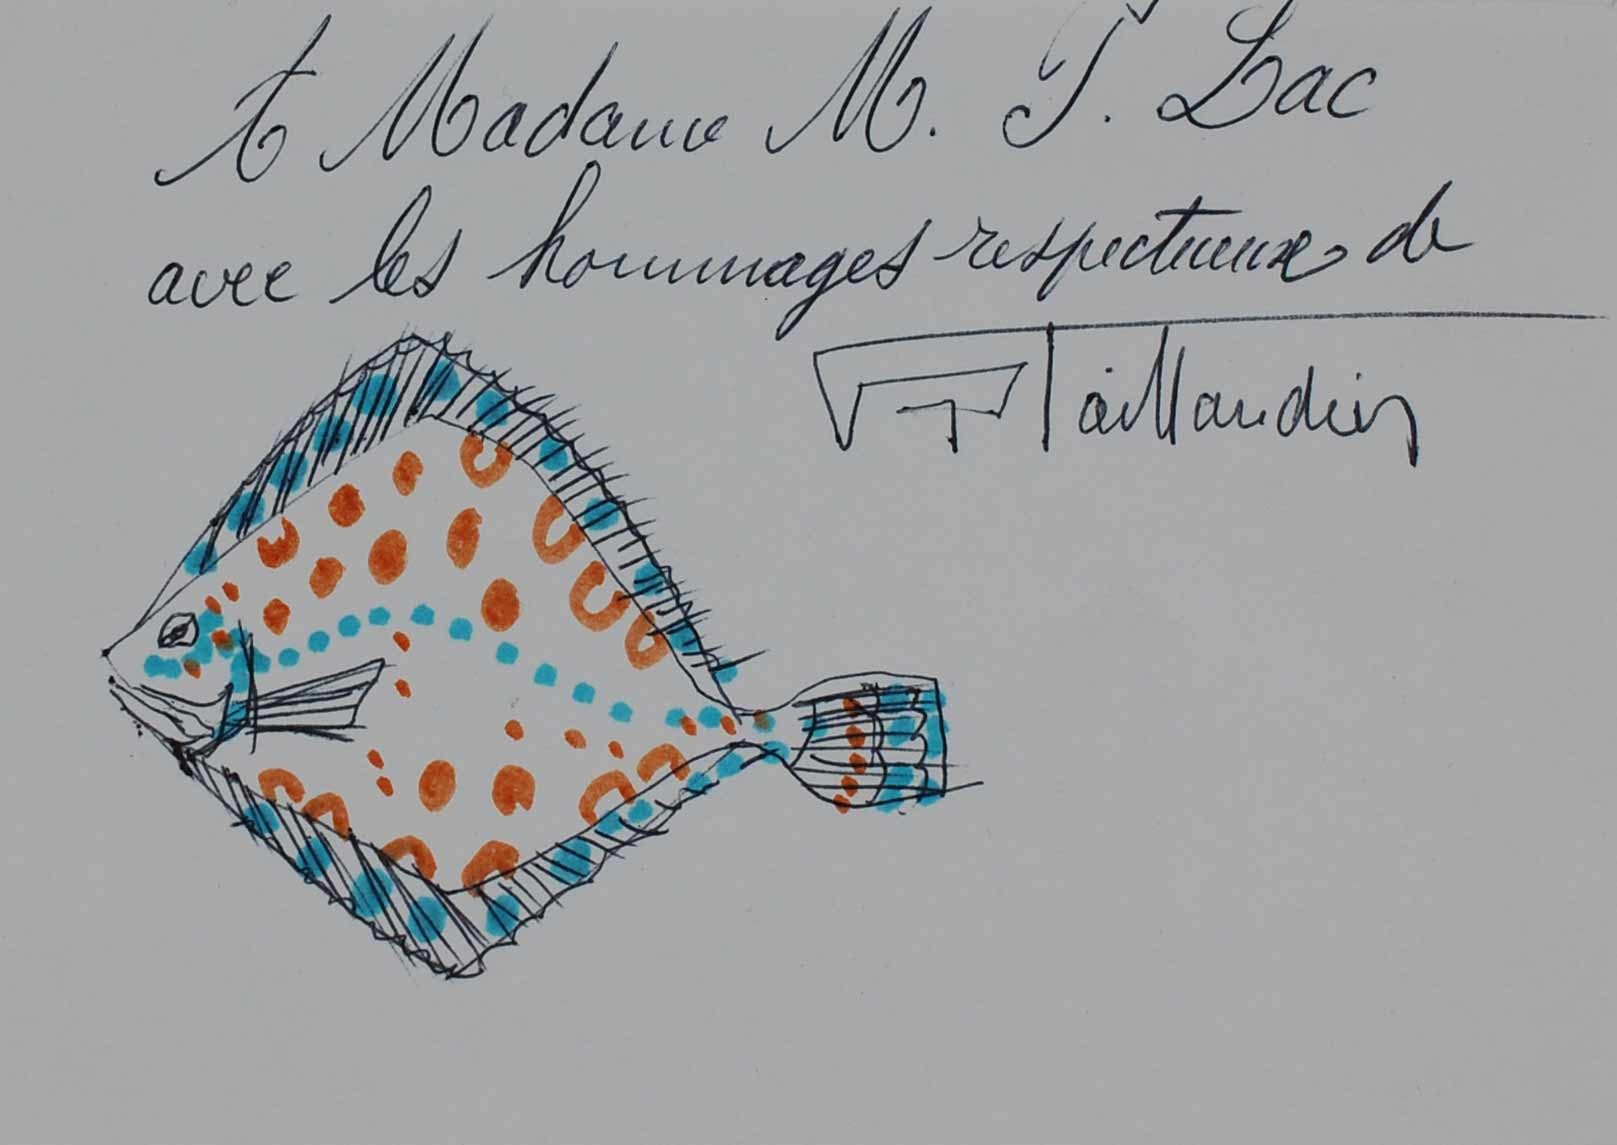 A Madame M. J. Lac
avec les hommages respectueux de
Taillandier